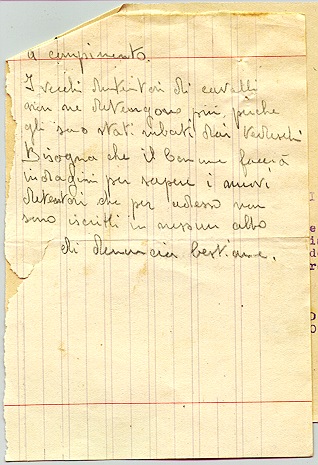 a compimento.
I vecchi detentori di cavalli
non ne detengono più, perche
gli sono stati rubati dai tedeschi
Bisogna che il Comune faccia
indagini per sapere i nuovi
detentori che per adesso non
sono iscritti in nessun albo
di denuncia bestiame.